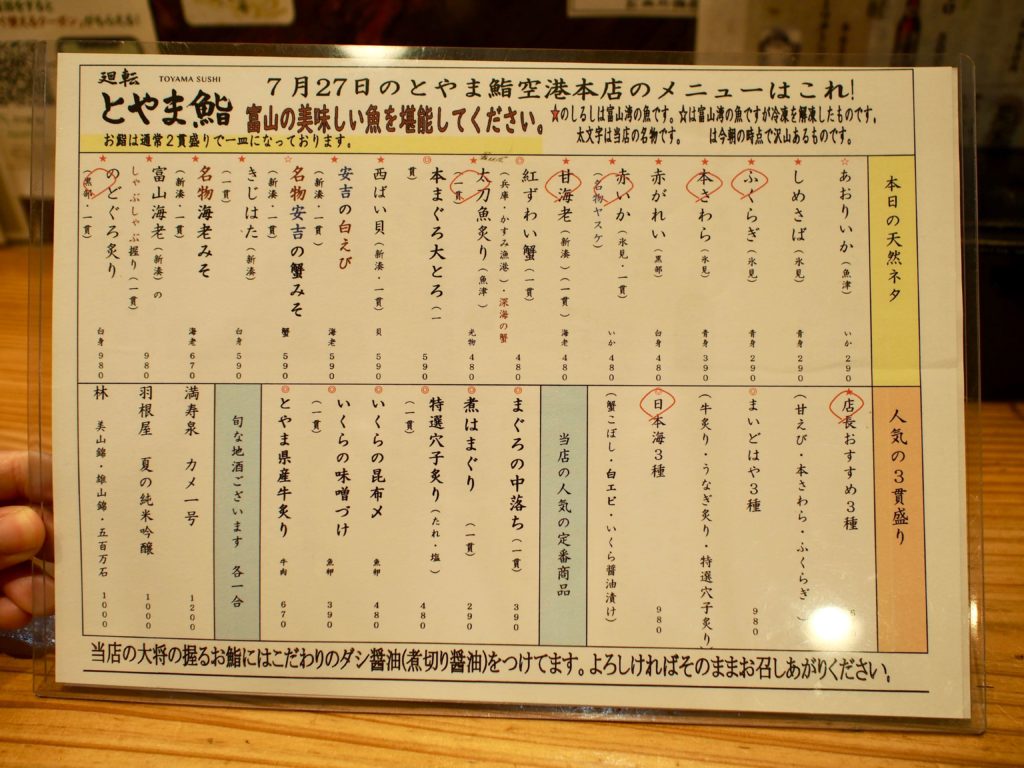 廻転 TOYAMA SUSHI
とやま鮨
7月27日のとやま鮨空港本店のメニューはこれ!
富山の美味しい魚を堪能してください。
★のしるしは富山湾の魚です。☆は富山湾の魚ですが冷凍を解凍したものです。
太文字は当店の名物です。 は今朝の時点で沢山あるものです。
お鮨は通常2貫盛りで一皿になっております。
本日の天然ネタ
☆あおりいか(魚津) いか 290
★しめさば(氷見) 青身 290
★ふくらぎ(氷見) 青身 290
★本さわら(氷見) 青身 390
★赤がれい(黒部) 白身 480
★赤いか(氷見・一貫) いか 480
名物ヤスケ
★甘海老(新湊)(一貫) 海老 480
◎紅ずわい蟹
(兵庫・かすみ漁港)・深海の蟹 480
★太刀魚炙り(魚津) 光物 480
(一貫)
◎本まぐろ大とろ(一貫) 590
★西ばい貝(新湊・一貫) 貝 590
★安吉の白えび 海老 590
(新湊・二貫)
☆名物安吉の蟹みそ 蟹 590
(新湊・二貫)
★きじはた(新湊) 白身 590
(一貫)
★名物海老みそ 海老 670
(新湊・二貫)
★富山海老(新湊)の
しゃぶしゃぶ握り(一貫) 980
★のどぐろ炙り 白身 980
(黒部・二貫)
人気の3貫盛り
★店長おすすめ3種
(甘えび・本さわら・ふくらぎ)
◎まいどはや3種 980
(牛炙り・うなぎ炙り・特選穴子炙り)
◎日本海3種 980
(蟹こぼし・白エビ・いくら醤油漬け)
当店の人気の定番商品
◎まぐろの中落ち(一貫) 390
◎煮はまぐり (一貫) 290
◎特選穴子炙り(たれ・塩) 480
(一貫)
◎いくらの昆布〆 魚卵 480
◎いくらの味噌づけ 魚卵 390
(一貫)
◎とやま県産牛炙り 牛肉 670
旬な地酒ございます 各一合
満寿泉 カメ一号 1200
羽根屋 夏の純米吟醸 1000
林 美山錦・雄山錦・五百万石 1000
当店の大将の握るお鮨にはこだわりのダシ醤油(煮切り醤油)をつけてます。よろしければそのままお召しあがりください。